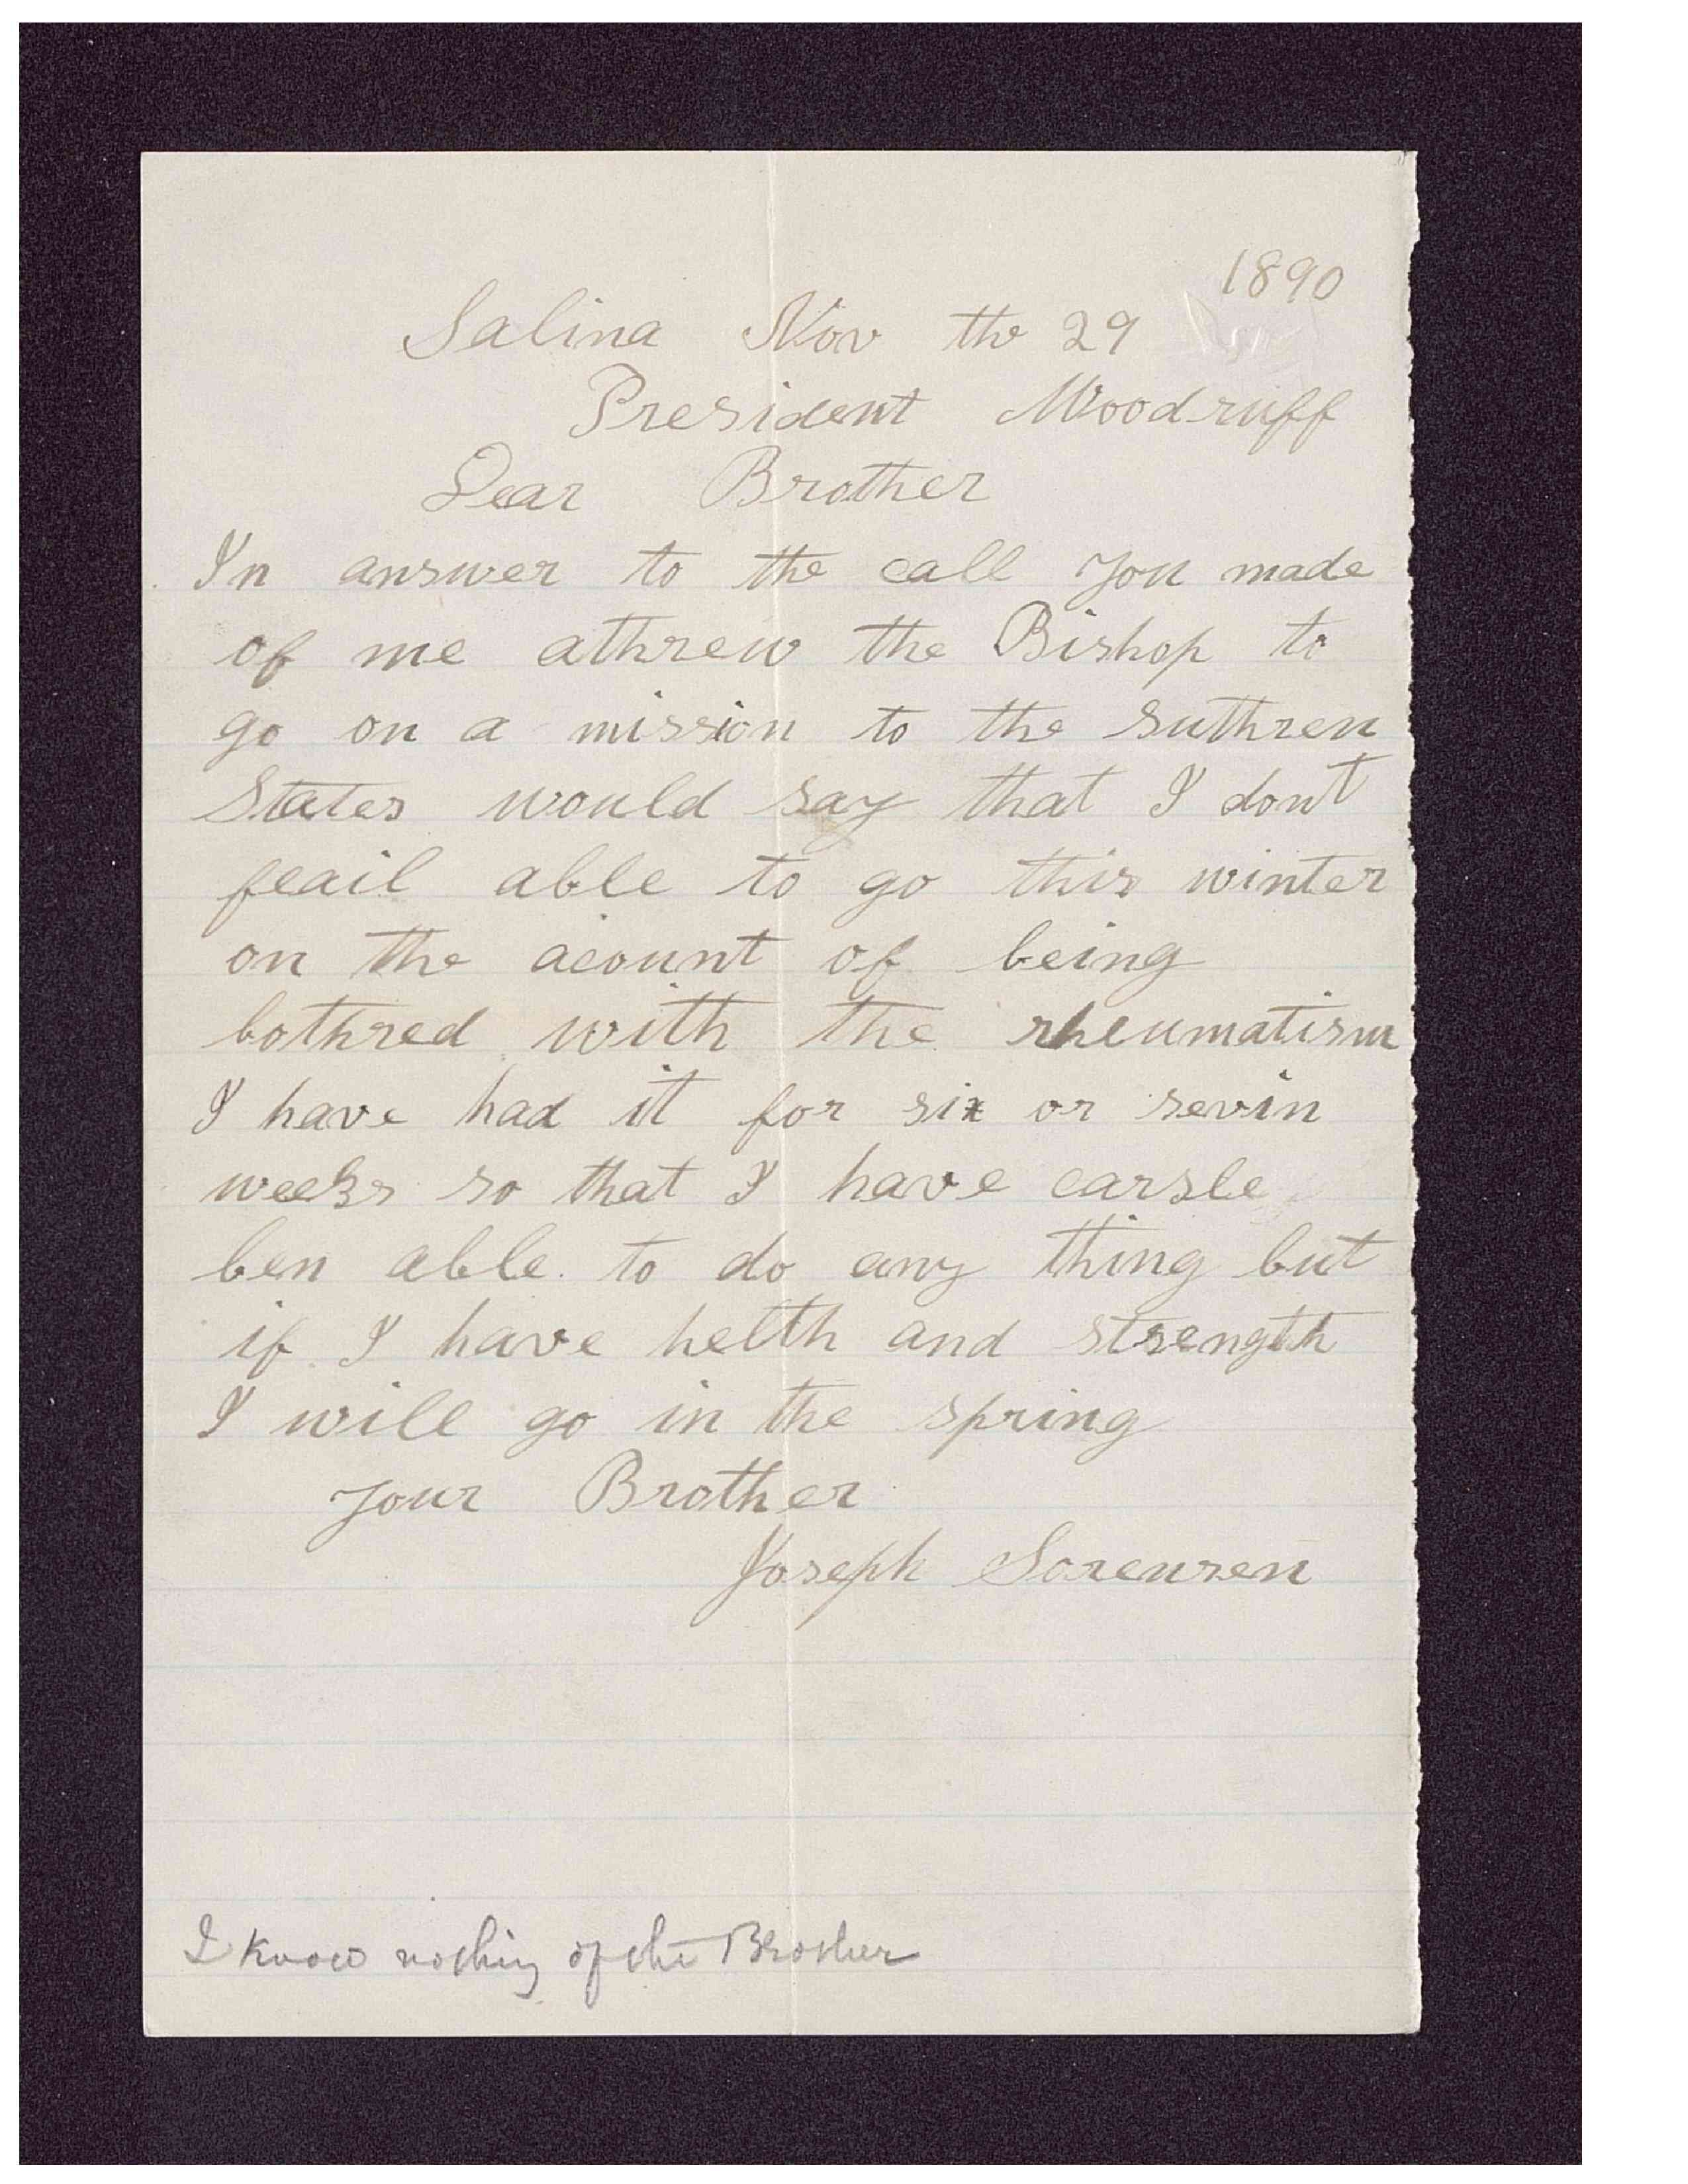 1890
Salina Nov the 29
President Woodruff
Dear Brother
In answer to the call you made
of me athrew the Bishop to
go on a mission to the suthren
States would say that I dont
feail able to go this winter
on the acount of being
bothred with the rheumatism
I have had it for six or sevin
weeks so that I have carsle
ben able to do any thing but
if I have helth and strength
I will go in the spring
your Brother
Joseph Sorensen
I know nothing of the Brother